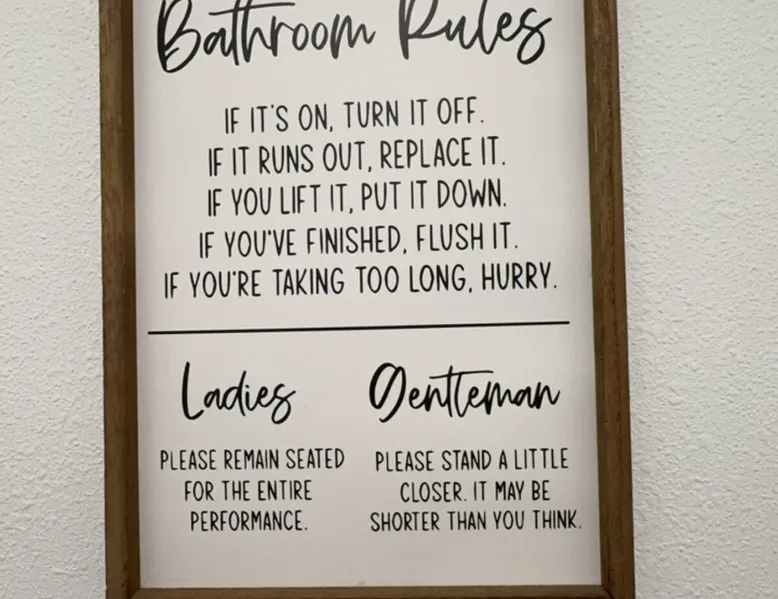 Bathroom Rules
IF IT'S ON, TURN IT OFF.
IF IT RUNS OUT, REPLACE IT.
IF YOU LIFT IT, PUT IT DOWN.
IF YOU'VE FINISHED, FLUSH IT.
IF YOU'RE TAKING TOO LONG, HURRY.
Ladies
PLEASE REMAIN SEATED
FOR THE ENTIRE
PERFORMANCE.
Gentleman
PLEASE STAND A LITTLE
CLOSER. IT MAY BE
SHORTER THAN YOU THINK.